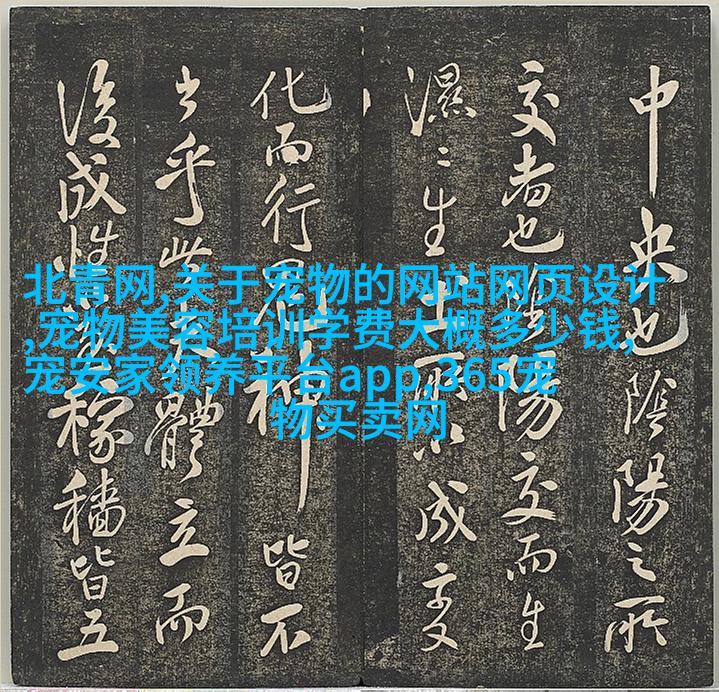 北青网,关于宠物的网站网页设计
,宠物美容培训学费大概多少钱,
宠安家领养平台app,365宠
物买卖网
中央也陰陽之所
交者也陰陽交而生
濕〻生土成变
化而行神皆不
乎體立而
後成性稼穡皆五